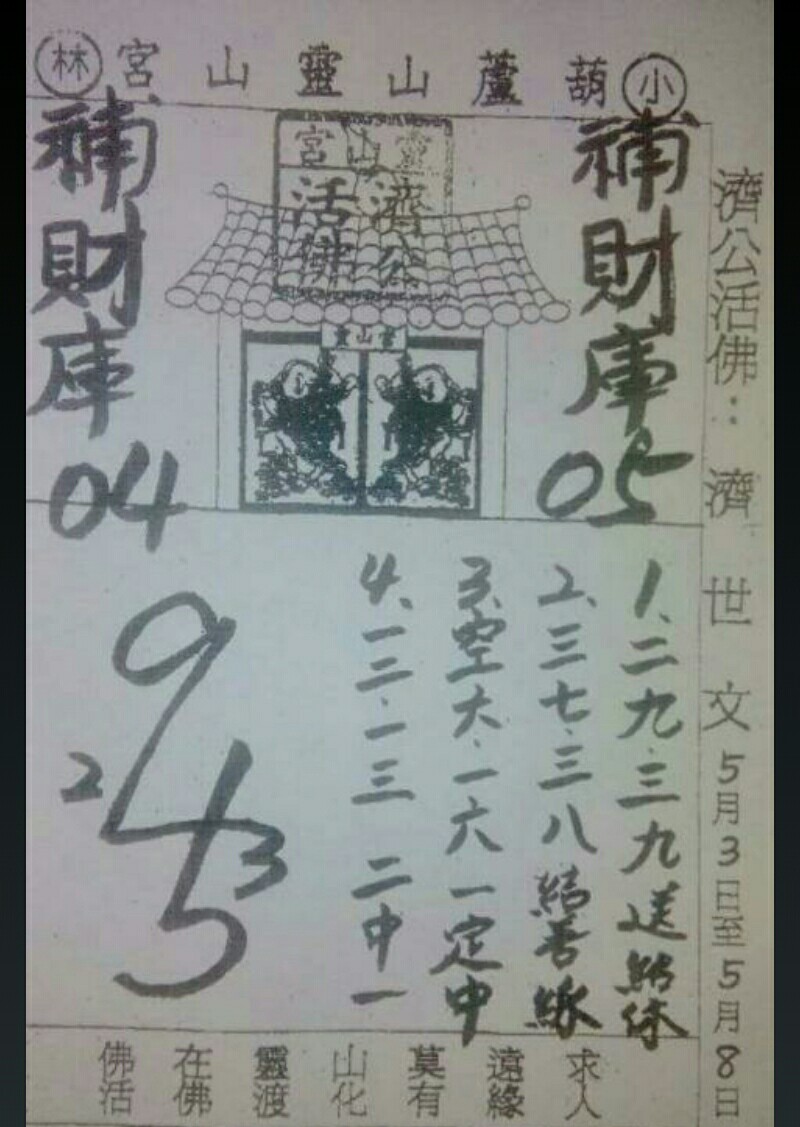 小葫蘆山靈山宮林
濟公活佛：濟世文5月3日至5月8日
靈山宮
濟公
活佛
補財庫
05
補財庫
04
1、二九．三九送給你
2、三七．三八結善緣
3、空六．一六一定中
4、一三．一三 二中一
9
2
4
3
5
求人
遠緣
莫有
山化
靈渡
在佛
佛活